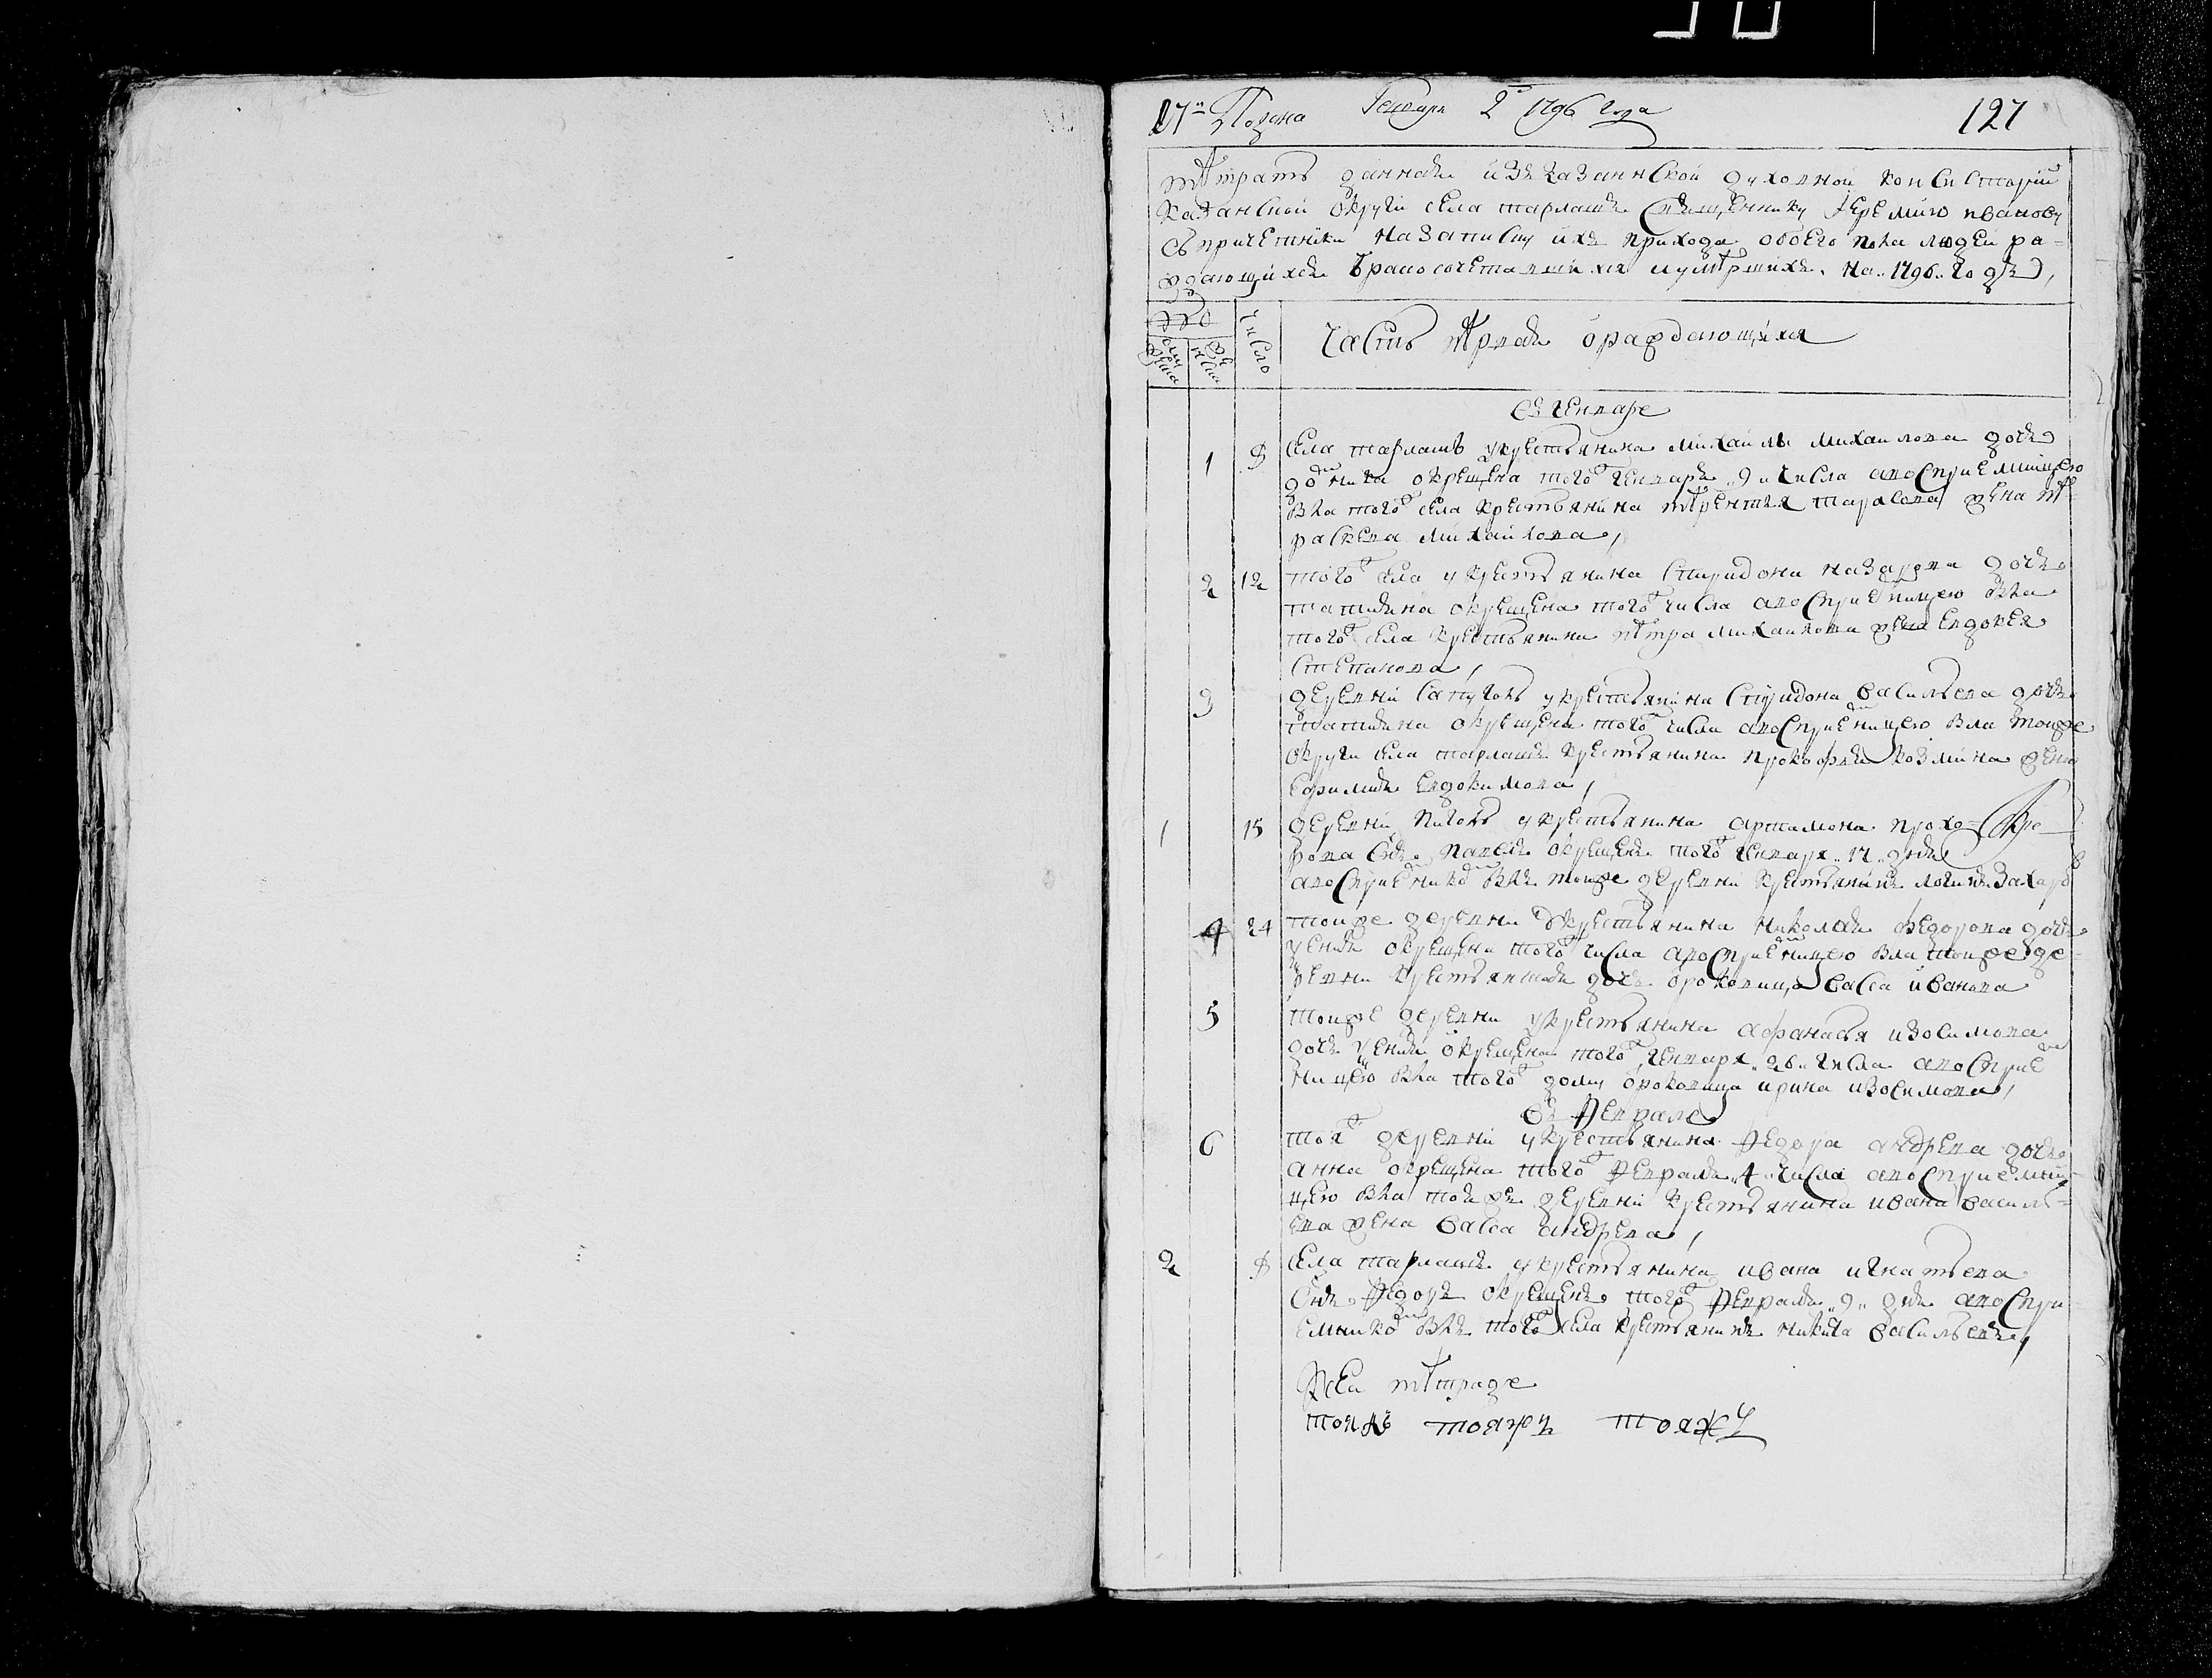 17ᵃ Подана Генваря 2 1796 года
127
Тетрать данная изъ казаннской духовной консистории
Казанской округи села тарлашъ священнику Иеремию иванову
съ причетники на записку ихъ прихода обоего пола людей ра=
ждающихся бракосочетавшихся и умершихъ. на 1796 годъ,
число
Часть первая о раждающихся
въ генваре
1 9 села тарлашъ у крестьянина михаилы михаилова дочь
домника окрещена того генваря 9 числа а восприемницею
бла того села крестьянина терентья тарасова жена
раскева михаилова,
2 12 того села у крестьянина спиридона назарова дочь
татияна окрещена того числа а восприемницею бла
того села крестьянина петра михаилова жена евдокея
степанова,
3 деревни сапуголь у крестьянина спиридона васильева дочь
татияна окрещена того числа а восприемницею бла тоиже
округи села тарлашъ крестьянина прокофья козмина жена
ефимия евдокимова,
1 15 деревни у крестьянина артамона прохо=
рова снъ павелъ окрещенъ того генваря 17 дня
а восприемнико блъ тоиже деревни крестьянинъ логинъ захаро
4 24 тоиже деревни у крестьянина николая федорова дочь
ксения окрещена того числа а восприемницею бла тоиже де=
ревни крестьянская дочь васса иванова
5 тоиже деревни у крестьянина афанасья изосимова
дочь ксения окрещена того генваря 26 числа а восприе
ницею бла того дому ирина изосимова,
въ феврале
6 тоя деревни у крестьянина федора андреева дочь
анна окрещена того февраля 4 числа а восприемни
цею бла тоя же деревни крестьянина ивана василь=
ева жена васса андреева,
2 9 села тарлашъ у крестьянина ивана игнатьева
снъ федоръ окрещенъ того февраля 9 дня а воспри
емнико блъ того села крестьянинъ никита васильевъ,